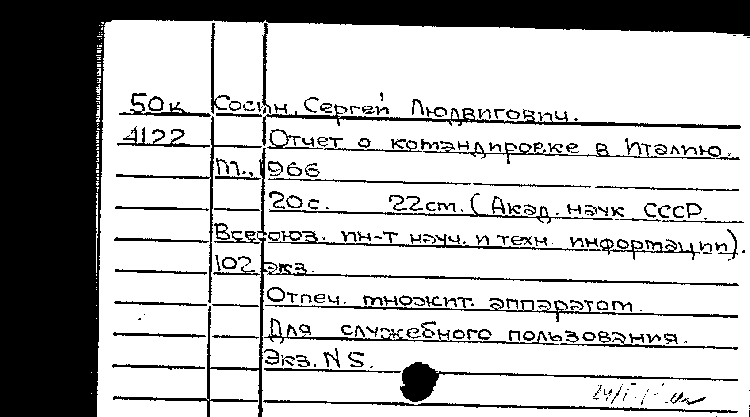 50к Сосин, Сергей Людвигович.
4122 Отчет о командировке в Италию.
М., 1966
20 с. 22 см. (Акад. наук СССР.
Всесоюз. ин-т науч. и техн. информации).
102 экз.
Отпеч. множит. аппаратом.
Для служебного пользования.
Экз. N 5.